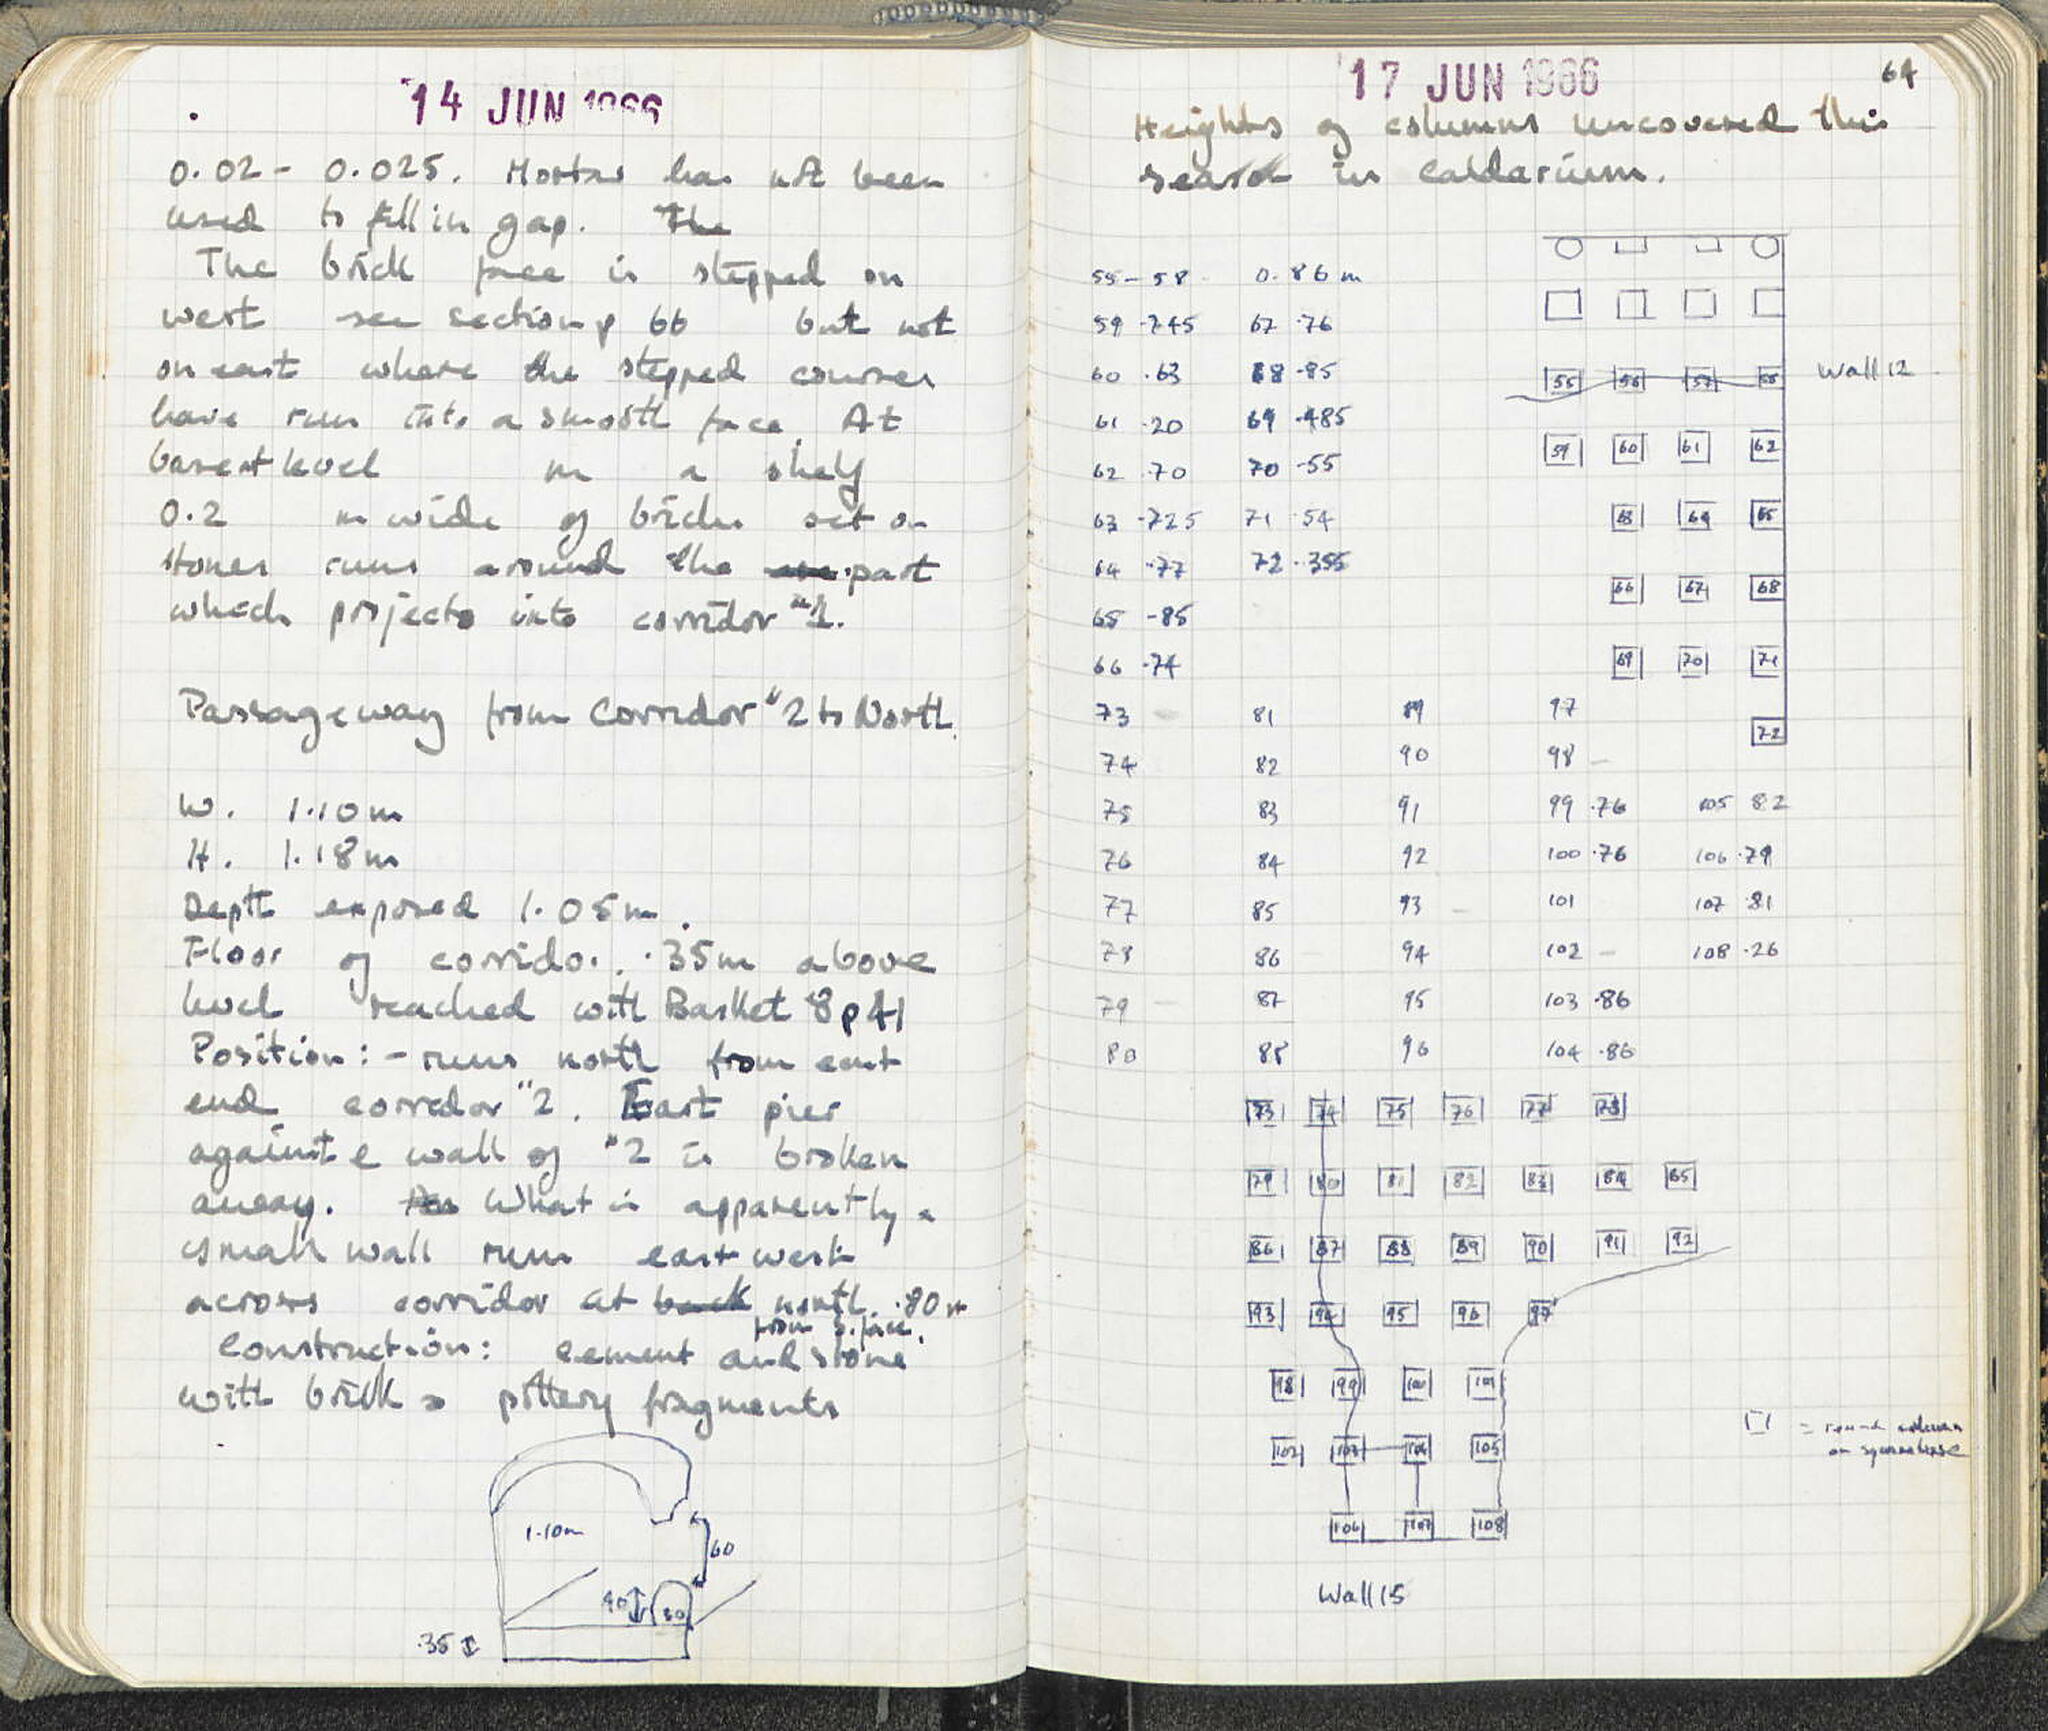 14 JUN 1966
0.02 - 0.025. Mortar has not been
used to fill in gap. The
The brick face is stepped on
west see section p 66 but not
on east where the stepped courses
have run into a smooth face. At
basest level m a shelf
0.2 m wide of bricks set on
stones runs around the part
which projects into corridor "1.
Passageway from Corridor "2 to North.
W. 1.10m
H. 1.18m
Depth exposed 1.05m.
Floor of corridor. .35m above
level reached with Basket 8 p 41
Position: - runs north from east
end corredor "2. East pier
against e wall of "2 is broken
away. What is apparently a
small wall runs east west
across corridor at back north. .80m
from s. face.
Construction: cement and stone
with brick & pottery fragments
1.10m
60
40
30
.35
17 JUN 1966
64
Heights of columns uncovered this
season in Caldarium.
55 - 58 - 0.86m
59 .745 67 .76
60 .63 68 .85
61 .20 69 .485
62 .70 70 .55
63 .725 71 .54
64 .77 72 .355
65 .85
66 .74
55 56 57 58 Wall 12
59 60 61 62
63 64 65
66 67 68
69 70 71
72
73 81 89 97
74 82 90 98 -
75 83 91 99 .76 105 82
76 84 92 100 .76 106 .79
77 85 93 - 101 107 .81
78 86 - 94 102 - 108 .26
79 - 87 95 103 .86
80 88 96 104 .86
73 74 75 76 77 78
79 80 81 82 83 84 85
86 87 88 89 90 91 92
93 94 95 96 97
98 99 100 101
102 103 104 105
106 107 108
= round column
on square base
Wall 15